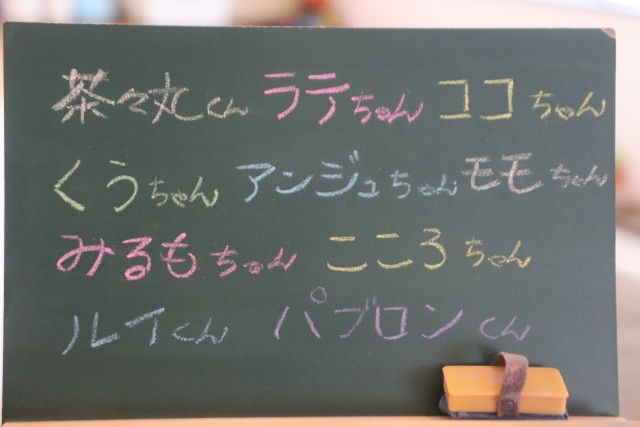 茶々丸くん ラテちゃん ココちゃん
くうちゃん アンジュちゃん モモちゃん
みるもちゃん こころちゃん
ルイくん パブロンくん